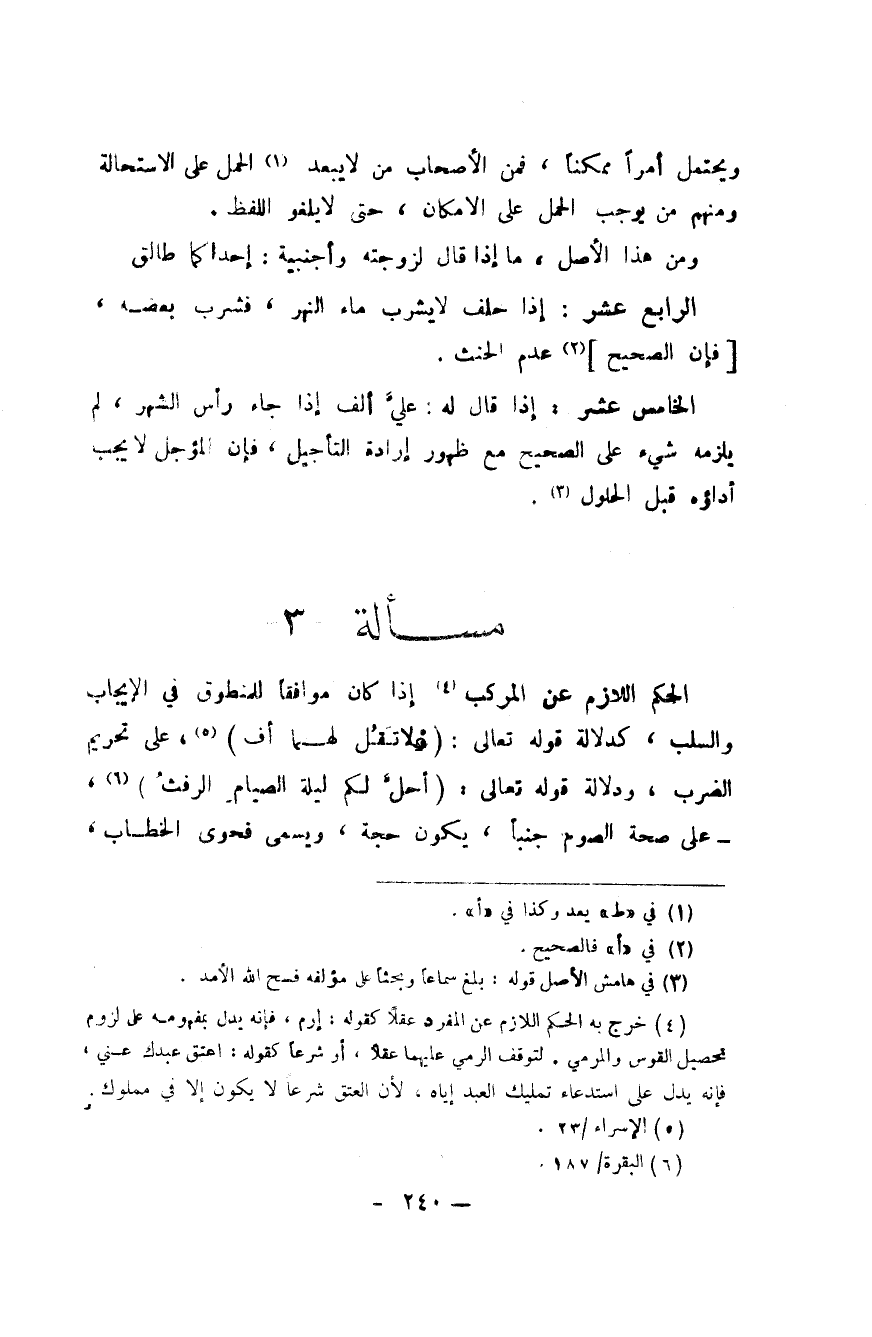 ويحتمل أمراً ممكناً ، فمن الأصحاب من لايبعد (١) الحمل على الاستحالة
ومنهم من يوجب الحمل على الامكان ، حتى لايلغو اللفظ .
ومن هذا الأصل ، ما إذا قال لزوجته وأجنبية : إحداكما طالق
الرابع عشر : إذا حلف لايشرب ماء النهر ، فشرب بعضـه ،
[ فإن الصحيح ](٢) عدم الحنث .
الخامس عشر : إذا قال له : عليَّ ألف إذا جاء رأس الشهر ، لم
يلزمه شيء على الصحيح مع ظهور إرادة التأجيل ، فإن المؤجل لايجب
أداؤه قبل الحلول (٣) .
مســـألة - ٣ -
الحكم اللازم عن المركب (٤) إذا كان موافقاً للمنطوق في الإيجاب
والسلب ، كدلالة قوله تعالى : ( فلاتَقُل لهــما أف ) (٥) ، على تحريم
الضرب ، ودلالة قوله تعالى : ( أحلَّ لكم ليلة الصيامِ الرفثُ ) (٦) ،
ـ على صحة الصوم جنباً ، يكون حجة ، ويسمى فحوى الخطـاب ،
(١) في «ط» يعد وكذا في «أ» .
(٢) في «أ» فالصحيح .
(٣) في هامش الأصل قوله : بلغ سماعاً وبحثاً على مؤلفه فسح الله الأمد .
(٤) خرج به الحكم اللازم عن المفرد عقلًا كقوله : إرم ، فإنه يدل بمفهومـه على لزوم
تحصيل القوس والمرمي . لتوقف الرمي عليهما عقلًا ، أو شرعاً كقوله : اعتق عبدك عـني ،
فإنه يدل على استدعاء تمليك العبد إياه ، لأن العتق شرعاً لا يكون إلا في مملوك .
(٥) الإسراء /٢٣ .
(٦) البقرة/ ١٨٧ .
— ٢٤٠ -